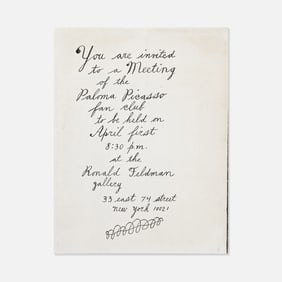 You are invited
to a Meeting
of the
Paloma Picasso
fan club
to be held on
April first
8:30 p.m.
at the
Ronald Feldman
gallery
33 east 74 street
new york 10021